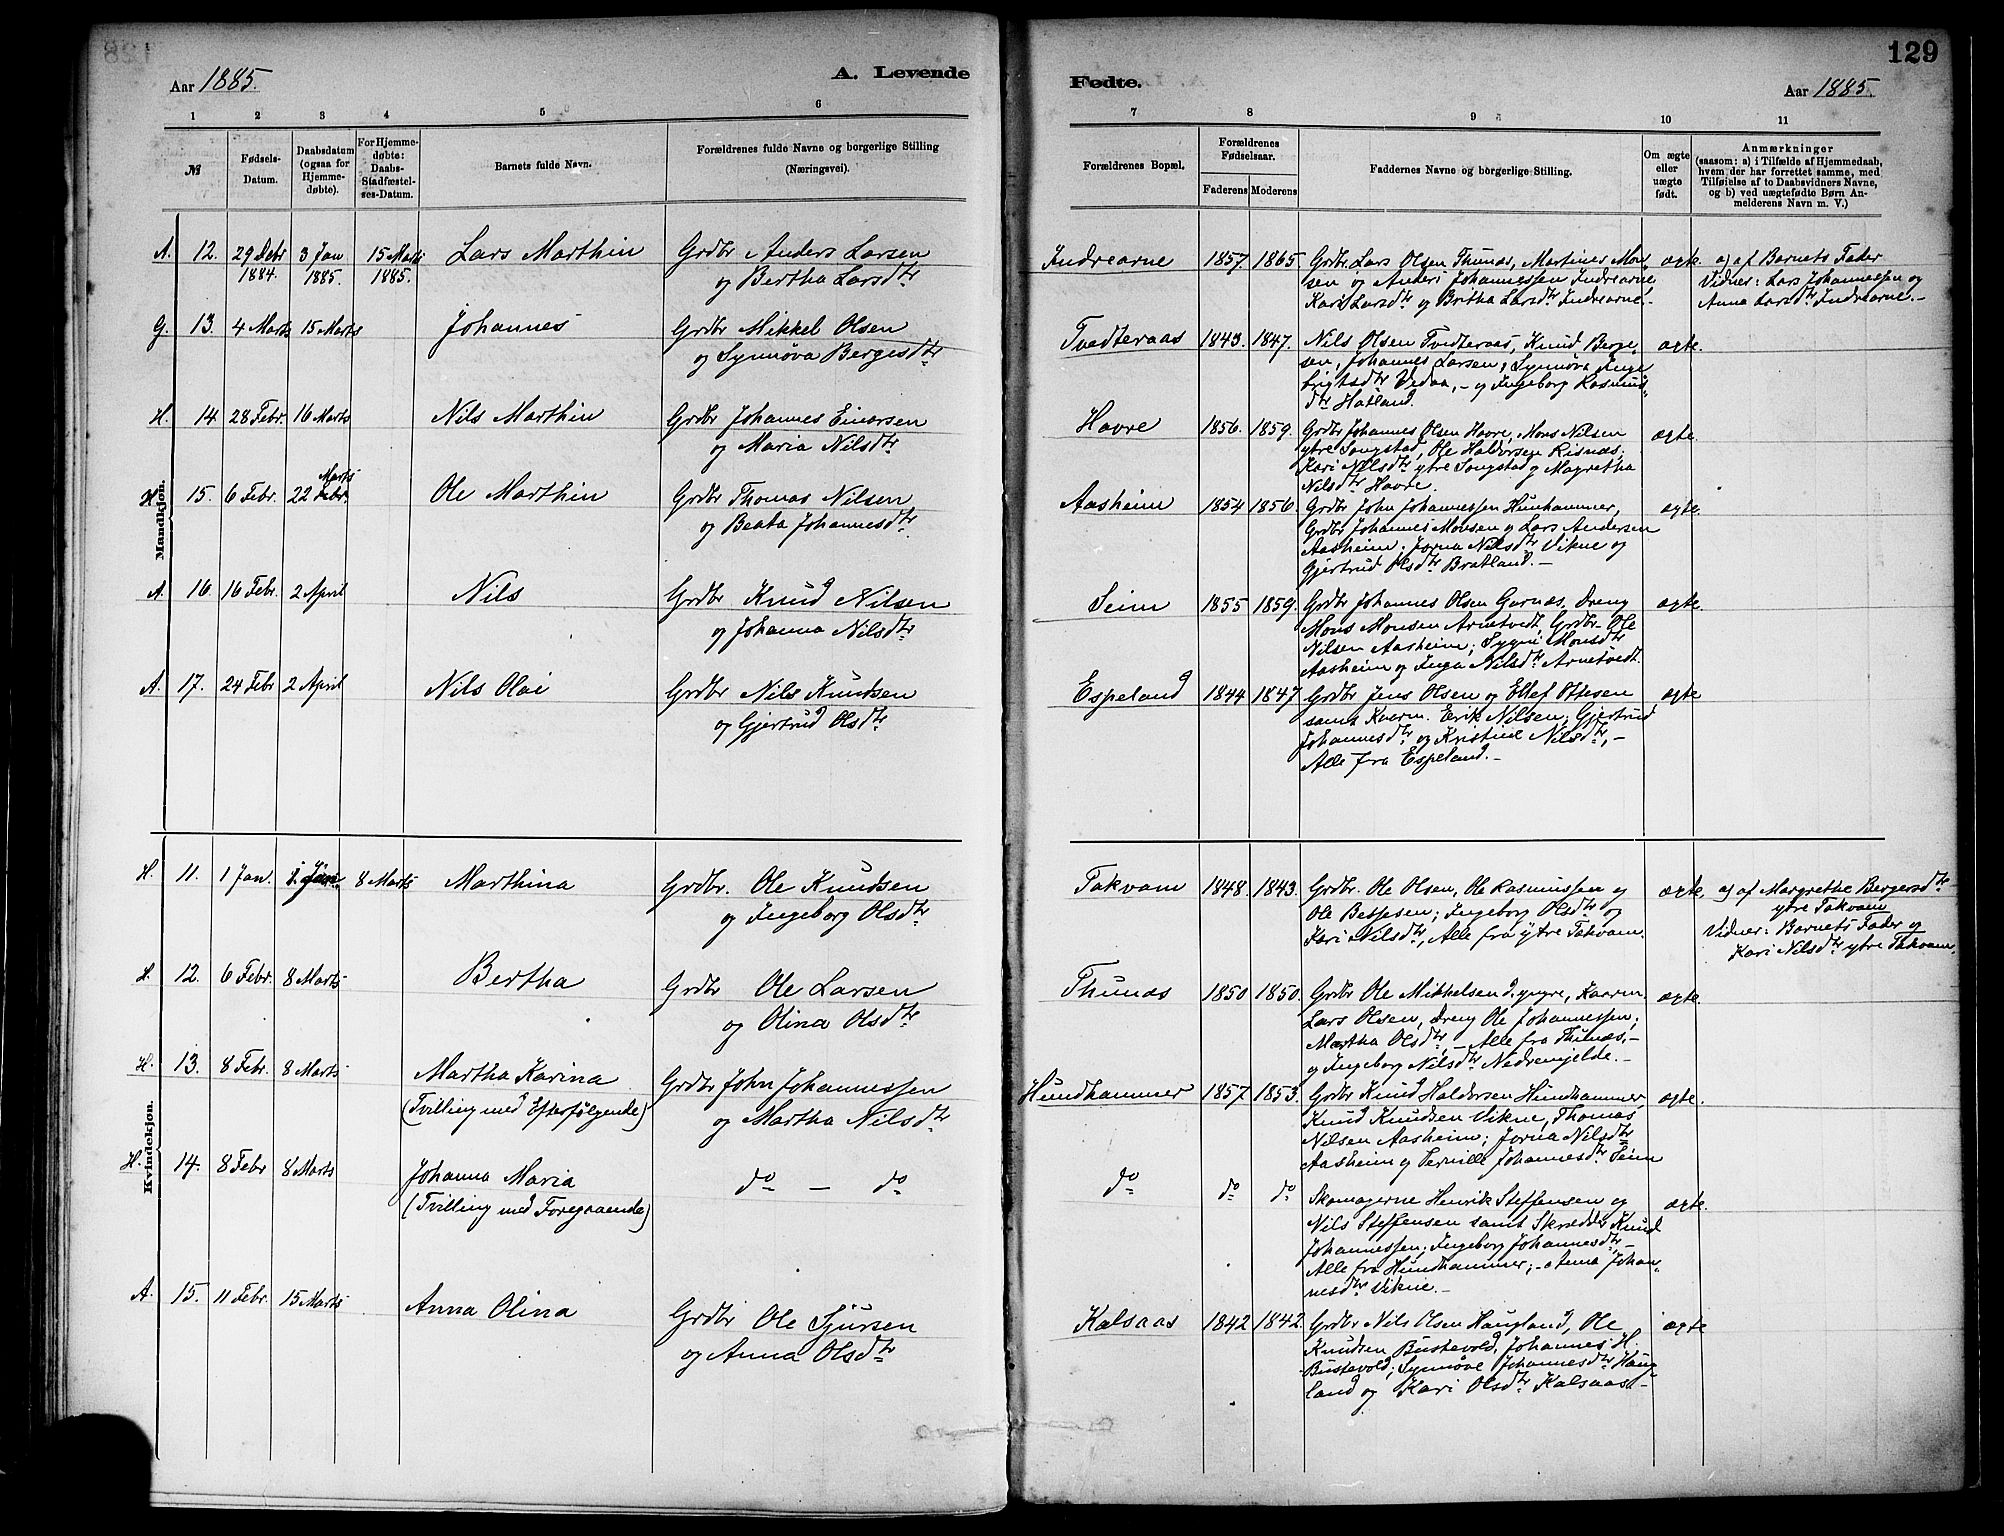 129
Aar 1885.
A. Levende
Fødte.
Aar 1885.
1 2 3 4 5 6 7 8 9 10 11
№
Fødsels-
Datum.
Daabsdatum
(ogsaa for
Hjemme-
døbte).
For Hjemme-
døbte:
Daabs-
Stadfæstel-
ses-Datum.
Barnets fulde Navn.
Forældrenes fulde Navne og borgerlige Stilling
(Næringsvei).
Forældrenes Bopæl.
Forældrenes
Fødselsaar.
Faderens Moderens
Faddernes Navne og borgerlige Stilling.
Om ægte
eller
uægte
født.
Anmærkninger
(saasom: a) i Tilfælde af Hjemmedaab,
hvem der har forrettet samme, med
Tilføielse af to Daabsvidners Navne,
og b) ved uægtefødte Børn An-
melderens Navn m. V.)
Mandkjøn.
A. 12. 29 Debr 3 Jan 15 Marts Lars Marthin Grdbr Anders Larsen
1884. 1885. 1885. og Bertha Larsdtr
Indrearne 1857. 1865. Grdbr. Lars Olsen Thunæs, Martinus Mon-
sen og Anders Johannessen Indrearne,
Kari Larsdtr og Britha Larsdtr Indrearne.-
ægte.
a) af Barnets Fader
Vidner: Lars Johannessen og
Anna Larsdtr Indrearne.-
G. 13. 4 Marts 15 Marts Johannes Grdbr Mikkel Olsen
og Synnøva Bergesdtr
Tvedteraas 1843. 1847. Nils Olsen Tvedteraas, Knud Berge-
sen, Johannes Larsen; Synnøva Inge-
brigtsdtr Vedaa,- og Ingeborg Rasmus-
dtr Hatland.
ægte.
H. 14. 28 Febr. 16 Marts Nils Marthin Grdbr Johannes Einarsen
og Maria Nilsdtr
Havre 1856. 1859. Grdbr Johannes Olsen Havre, Mons Nilsen
ytre Songstad, Ole Haldorsen Risnæs;
Kari Nilsdtr ytre Songstad og Magretha
Nilsdtr Havre.
ægte.
H. 15. 6 Febr. 22 Marts Ole Marthin Grdbr Thomas Nilsen
og Beata Johannesdtr
Aasheim 1854 1856. Grdbr John Johannessen Hunhammer,
Grdbr Johannes Monsen og Lars Andersen
Aasheim; Jorna Nilsdtr Vikne og
Gjertrud Olsdtr Bratland.-
ægte.
A. 16. 16 Febr. 2 April Nils Grdbr Knud Nilsen
og Johanna Nilsdtr
Seim 1855 1859. Grdbr Johannes Olsen Garnæs, Dreng
Mons Monsen Arnetvedt, Grdbr Ole
Nilsen Aasheim; Sygni Monsdtr
Aasheim og Inga Nilsdtr Arnetvedt.
ægte.
A. 17. 24 Febr 2 April Nils Olai Grdbr Nils Knudsen
og Gjertrud Olsdtr
Espeland 1844 1847 Grdbr Jens Olsen og Ellef Ottesen
samt Kaarm. Erik Nilsen; Gjertrud
Johannesdtr og Kristine Nilsdtr,-
Alle fra Espeland.-
ægte
Kvindekjøn.
H. 11. 1 Jan. 8 Marts Marthina Grdbr. Ole Knudsen
og Ingeborg Olsdtr
Takvam 1848. 1843. Grdbr. Ole Olsen, Ole Rasmussen og
Ole Bessesen; Ingeborg Olsdtr og
Kari Nilsdtr, Alle fra ytre Takvam.
ægte.
a) af Margrethe Bergersdtr
ytre Takvam
Vidner: Barnets Fader og
Kari Nilsdtr ytre Takvam.
H. 12. 6 Febr. 8 Marts Bertha Grdbr Ole Larsen
og Olina Olsdtr
Thunæs 1850 1850. Grdbr Ole Mikkelsen d. yngre, Kaarm.
Lars Olsen, Dreng Ole Johannessen;
Martha Olsdtr,- Alle fra Thunæs,-
og Ingeborg Nilsdtr Nedremjelde.-
ægte.
H. 13. 8 Febr. 8 Marts Martha Karina Grdbr John Johannessen
(Tvilling med Efterfølgende) og Martha Nilsdtr
Hundhammer 1857 1853. Grdbr Knud Haldorsen Hundhammer,
Knud Knudsen Vikne, Thomas
Nilsen Aasheim; Jorna Nilsdtr
Aasheim og Pernille Johannesdtr Seim
ægte.
H. 14. 8 Febr 8 Marts Johanna Maria do - do
(Tvilling med Foregaaende)
do do do Skomagerne Henrik Steffensen og
Nils Steffensen samt Skrædder Knud
Johannessen; Ingeborg Johannesdtr,-
Alle fra Hundhammer;- Anna Johan-
nesdtr Vikne.-
ægte.
A. 15. 11 Febr. 15 Marts Anna Olina Grdbr Ole Sjursen
og Anna Olsdtr
Kalsaas 1842 1842. Grdbr Nils Olsen Haugland, Ole
Knudsen Bustevold, Johannes H.
Bustevold; Synnøve Johannesdtr Haug-
land og Kari Olsdtr Kalsaas.-
ægte